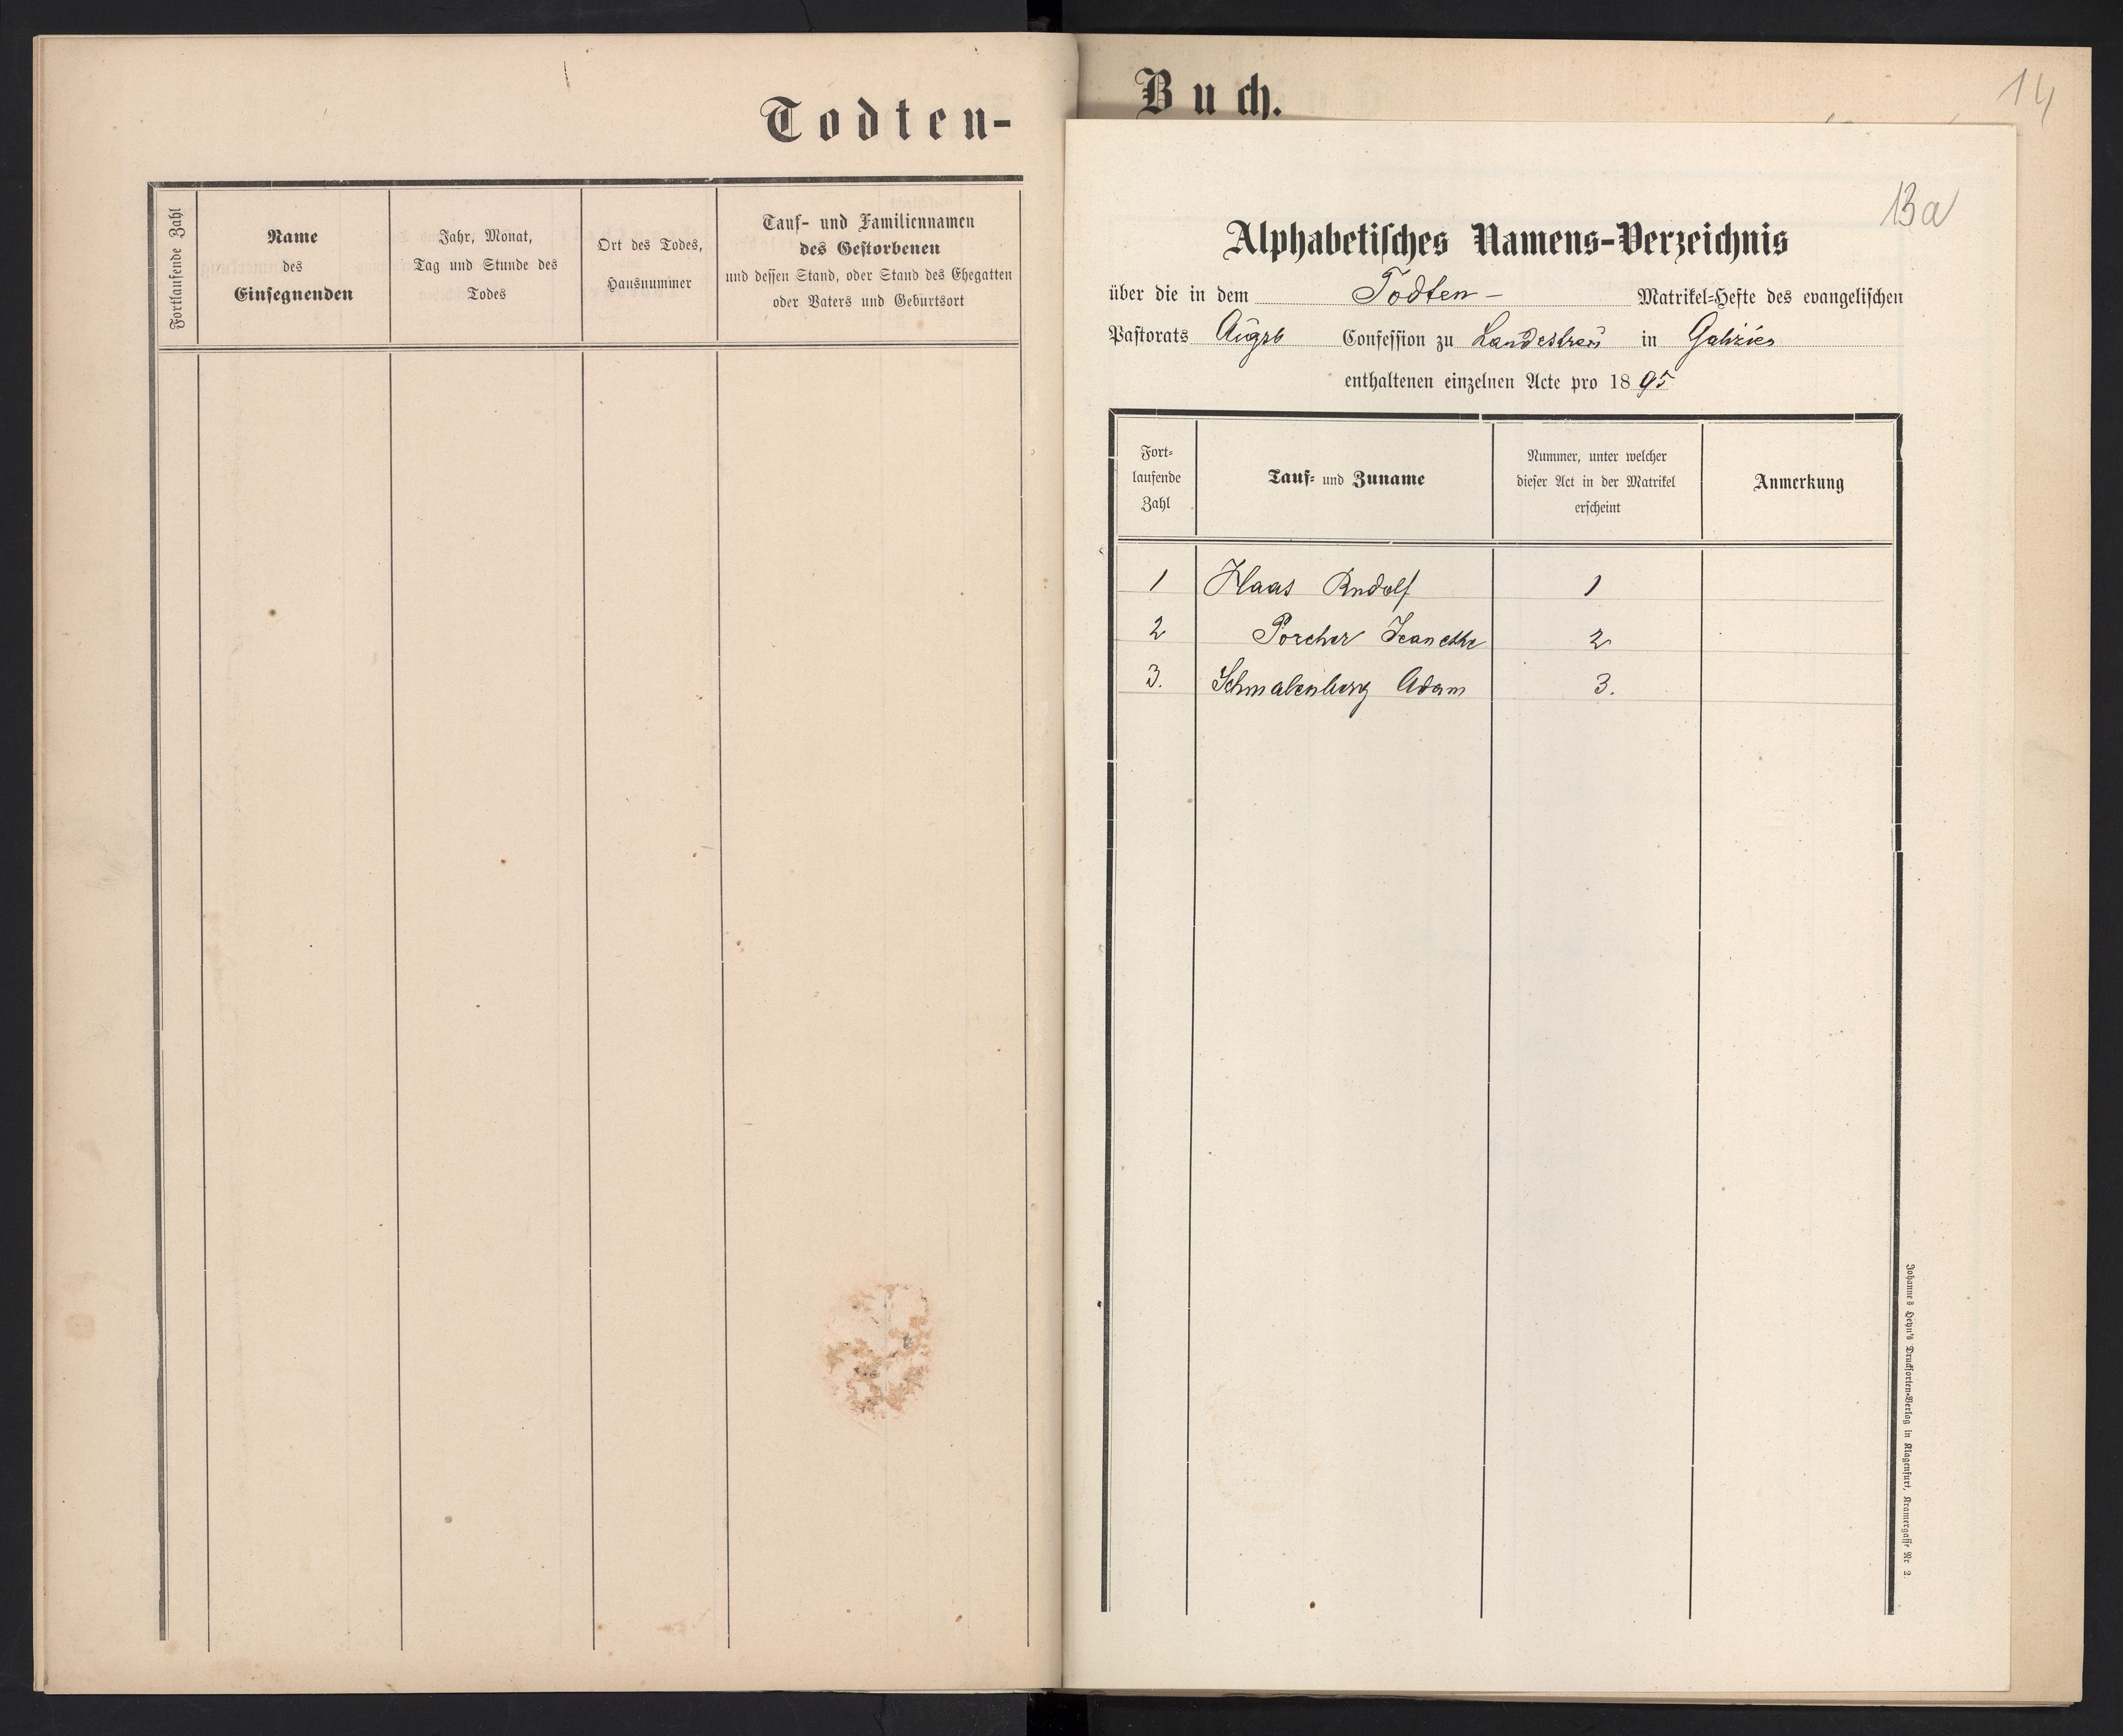 Todten-
Fortlaufende Zahl
Name
des
Einsegnenden
Jahr, Monat,
Tag und Stunde des
Todes
Ort des Todes,
Hausnummer
Tauf- und Familiennamen
des Gestorbenen
und dessen Stand, oder Stand des Ehegatten
oder Vaters und Geburtsort
Buch.
14
13a
Alphabetisches Namens-Verzeichnis
über die in dem Todten- Matrikel-Hefte des evangelischen
Pastorats Augsb Confession zu Landestreu in Galizien
enthaltenen einzelnen Acte pro 1895
Fort-
laufende
Zahl
Tauf- und Zuname
Nummer, unter welcher
dieser Act in der Matrikel
erscheint
Anmerkung
1 Haas Rudolf 1
2 Porcher Jeanette 2
3. Schmalenberg Adam 3.
Johannes Heyn's Drucksorten-Verlag in Klagenfurt, Kramergasse Nr 2.